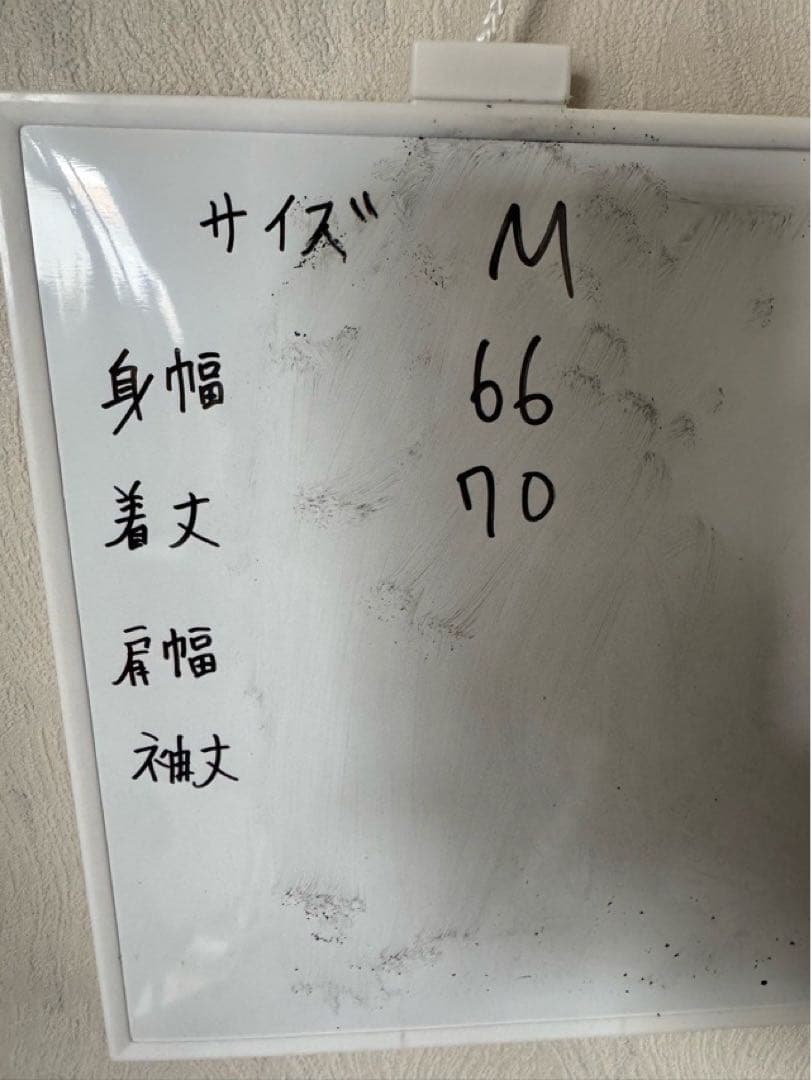 サイズ M
身幅 66
着丈 70
肩幅
袖丈